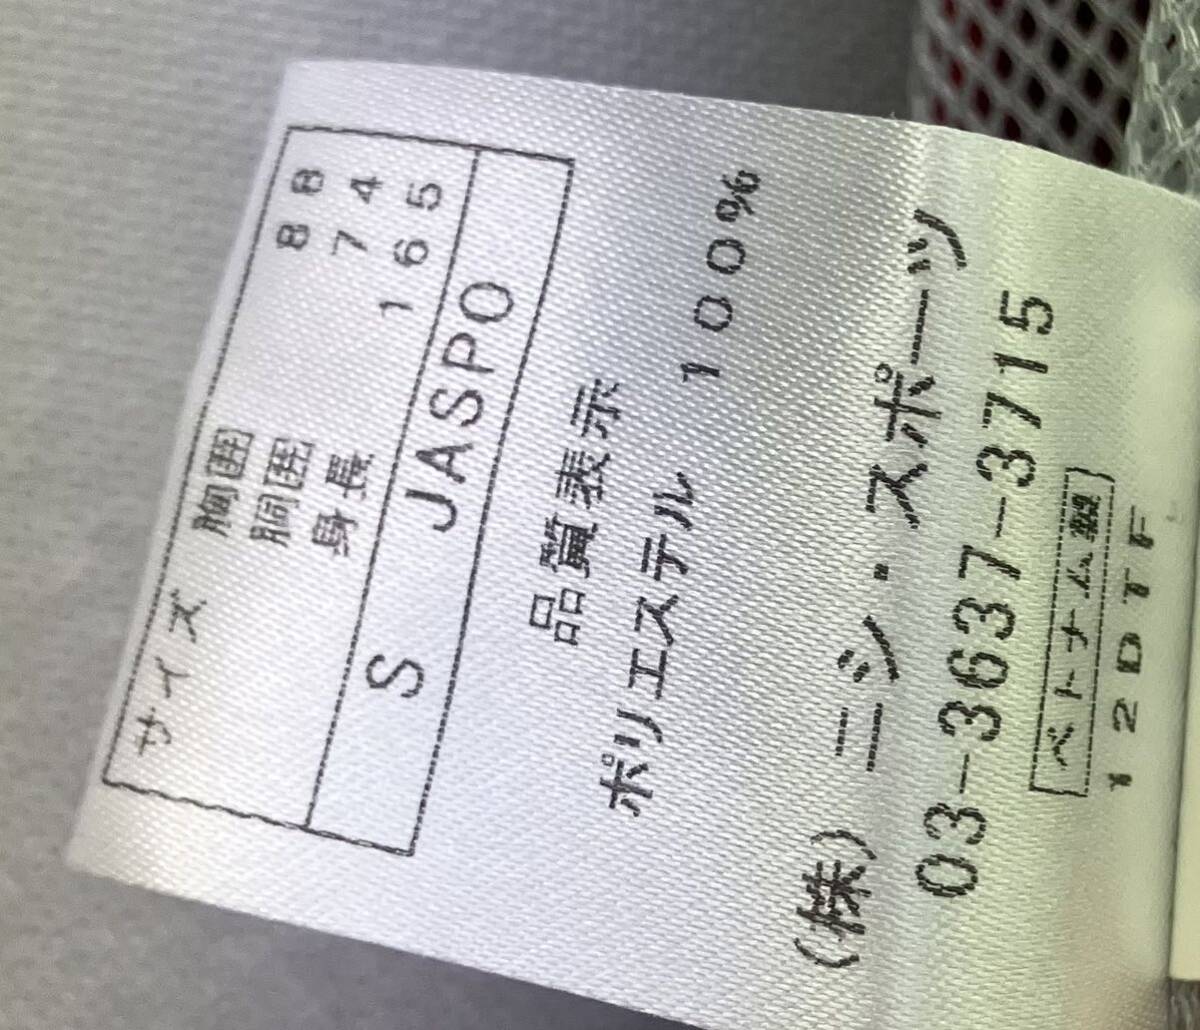 サイズ
胸囲 88
胴囲 74
身長 165
S JASPO
品質表示
ポリエステル 100%
(株)ニシ・スポーツ
03-3637-3715
ベトナム製
12DTF